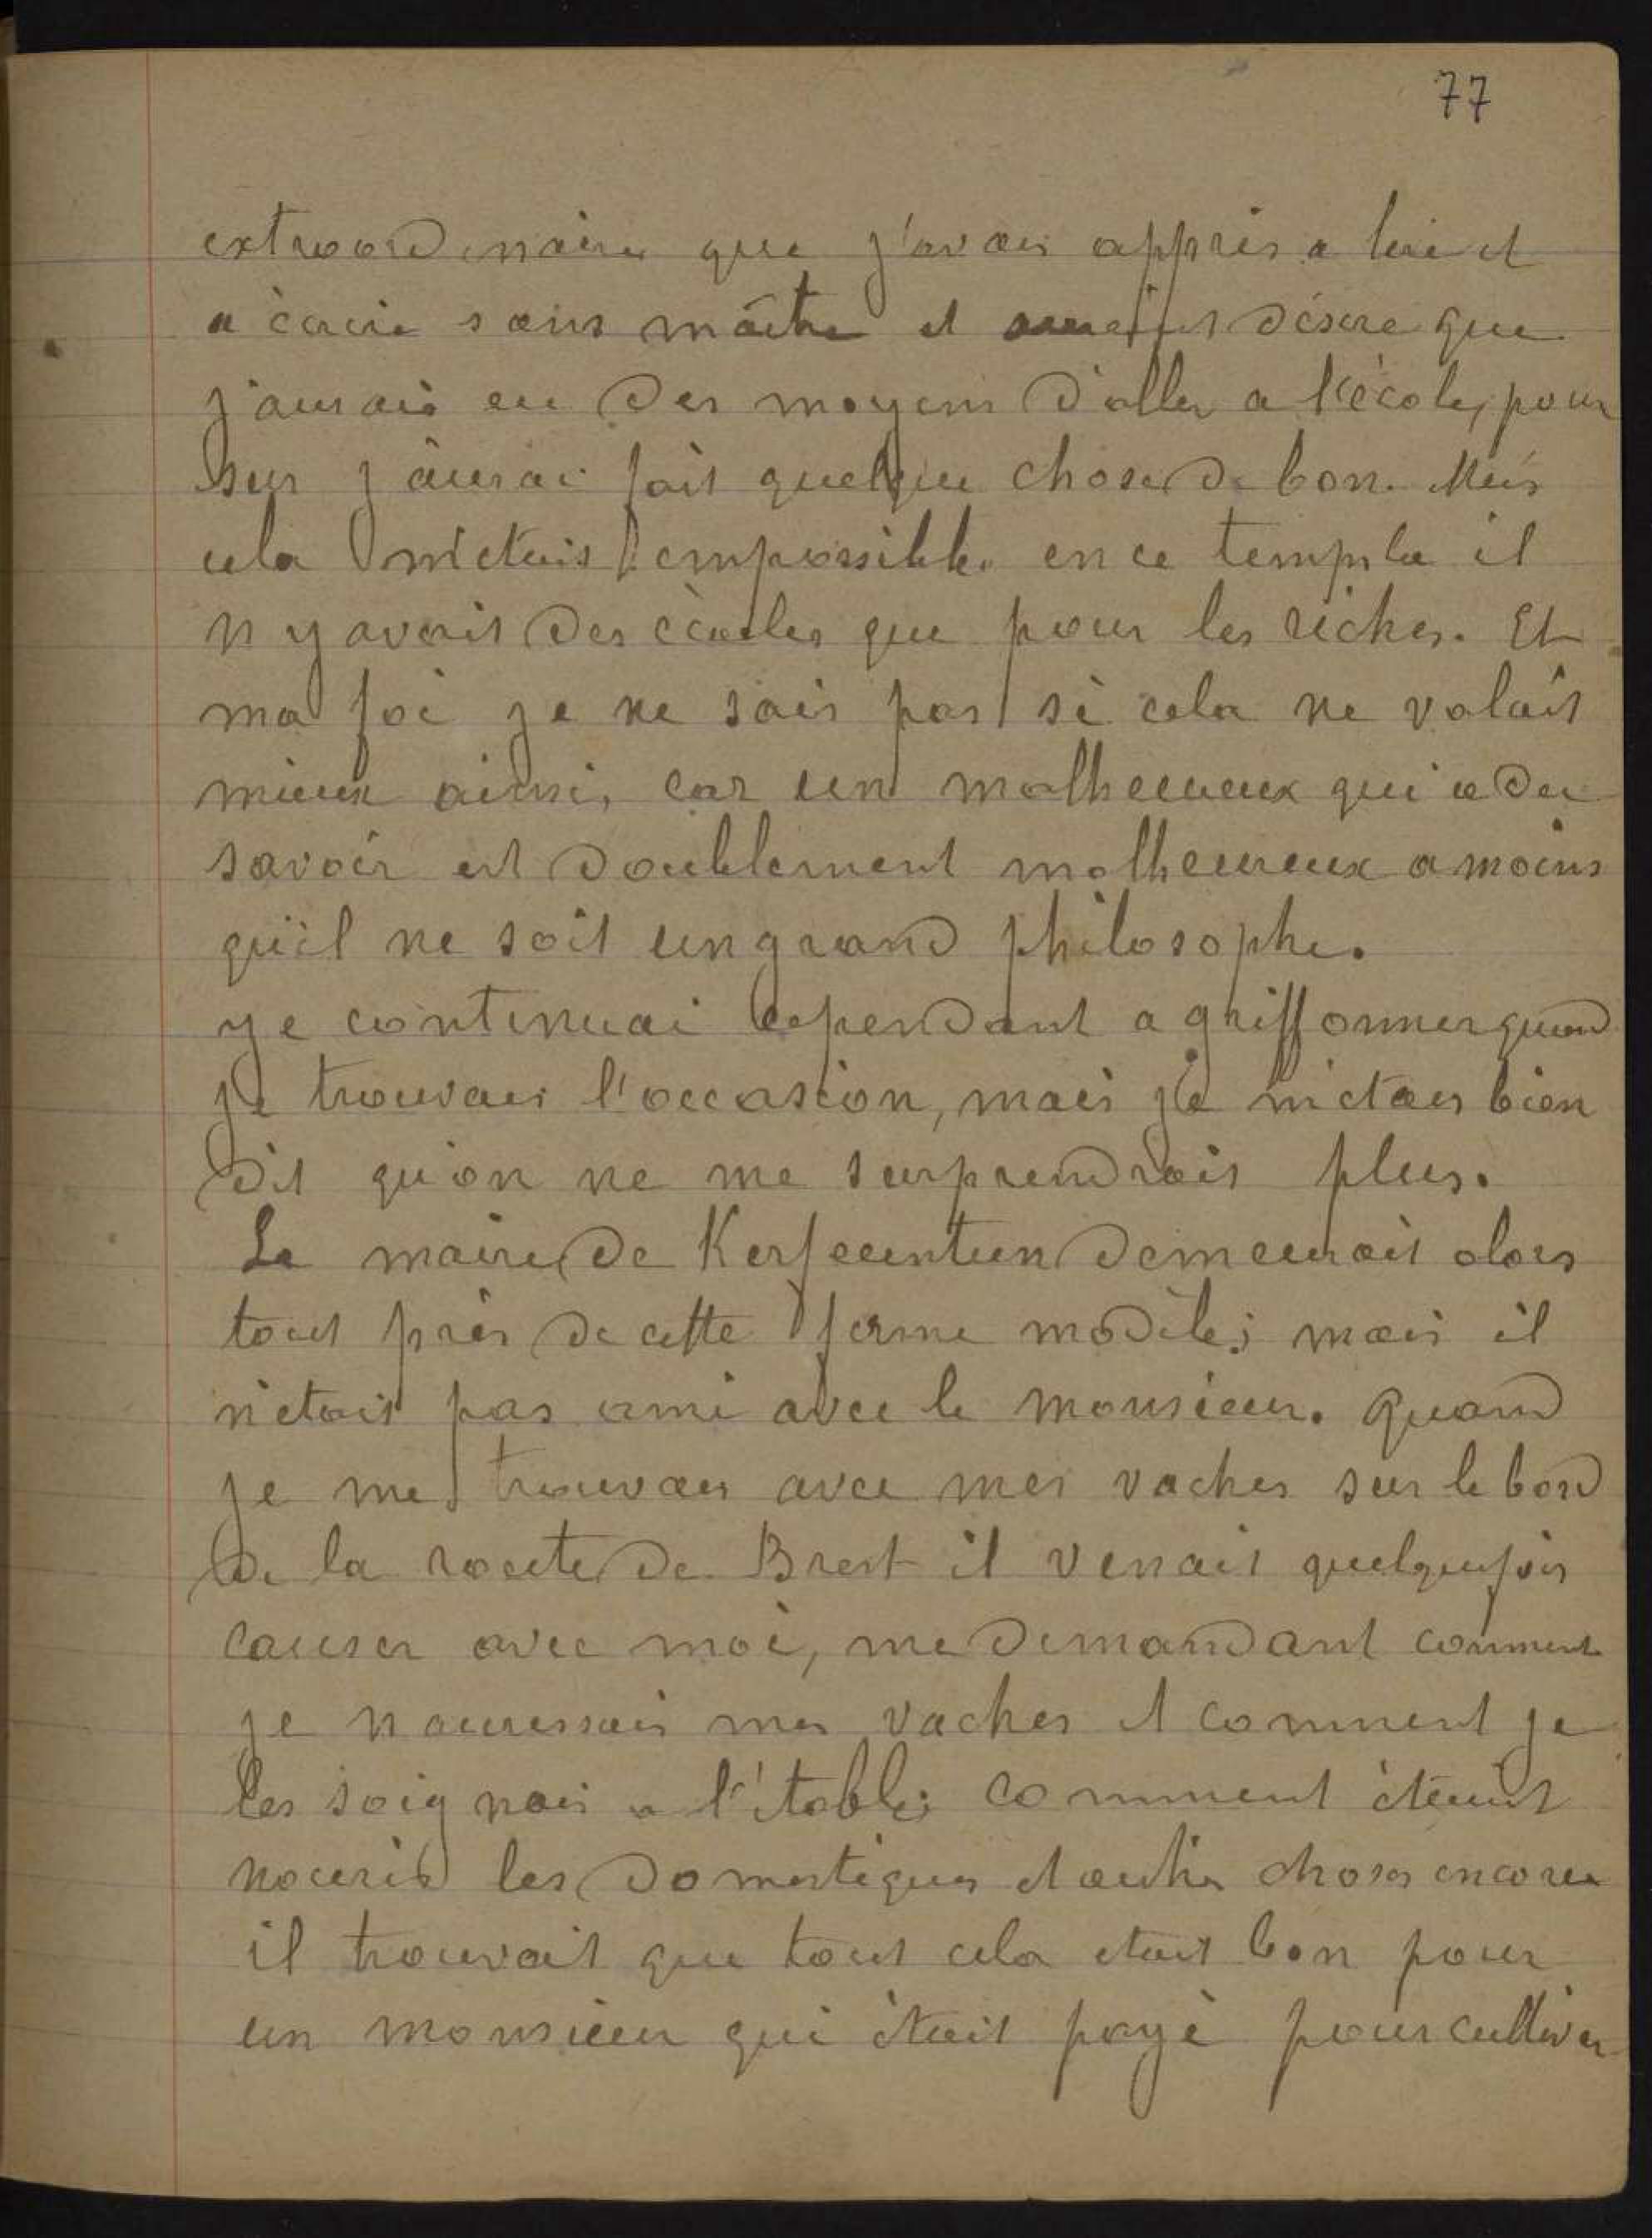 77
extraordinaire que j'avais appris a lire et
a ècrire sans maître et désire que
j'aurais eu des moyens d'aller a l'école, pour
sur j'aurai fait quelque chose de bon. Mais
cela m'etais impossible. en ce temps la il
n'y avait des ècoles que pour les riches. Et
ma foi je ne sais pas si cela ne valait
mieux ainsi, car un malheureux qui a du
savoir est doublement malheureux a moins
qu'il ne soit un grand philosophe.
je continuai cependant a griffonner quand
je trouvais l'occasion, mais je m'etais bien
dit qu'on ne me surprendrais plus.
Le maire de Kerfeunteun demeurait alors
tout près de cette ferme modèle; mais il
n'etait pas ami avec le monsieur. Quand
je me trouvais avec mes vaches sur le bord
de la route de Brest il venait quelquefois
causer avec moi, me demandant comment
je nourissais mes vaches et comment je
les soignais a l'étable; comment étaient
nouris les domestiques et autres choses encores
il trouvait que tout cela etait bon pour
un monsieur qui ètait payè pour cultiver